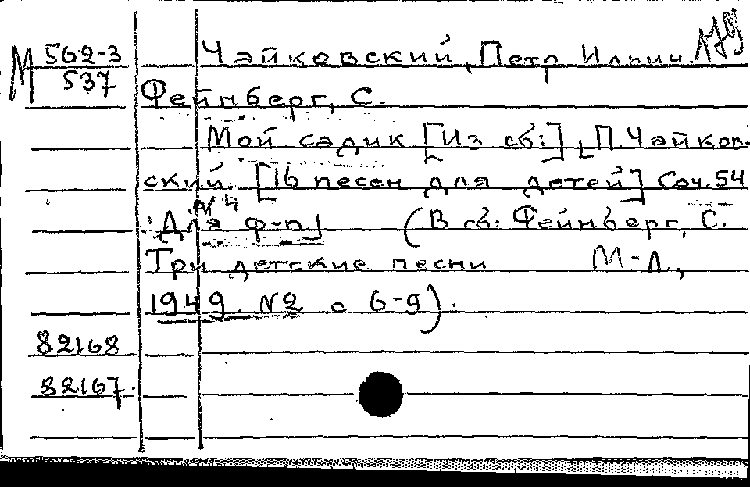 М 562-3
537
Чайковский, Петр Ильич
Фейнберг, С.
Мой садик [Из сб:] [П. Чайков-
ский. [16 песен для детей] Соч. 54
№ 4
Для ф-п] (В сб: Фейнберг, С.
Три детские песни М-Л,
1949. №2 с 6-9).
82168
82167.